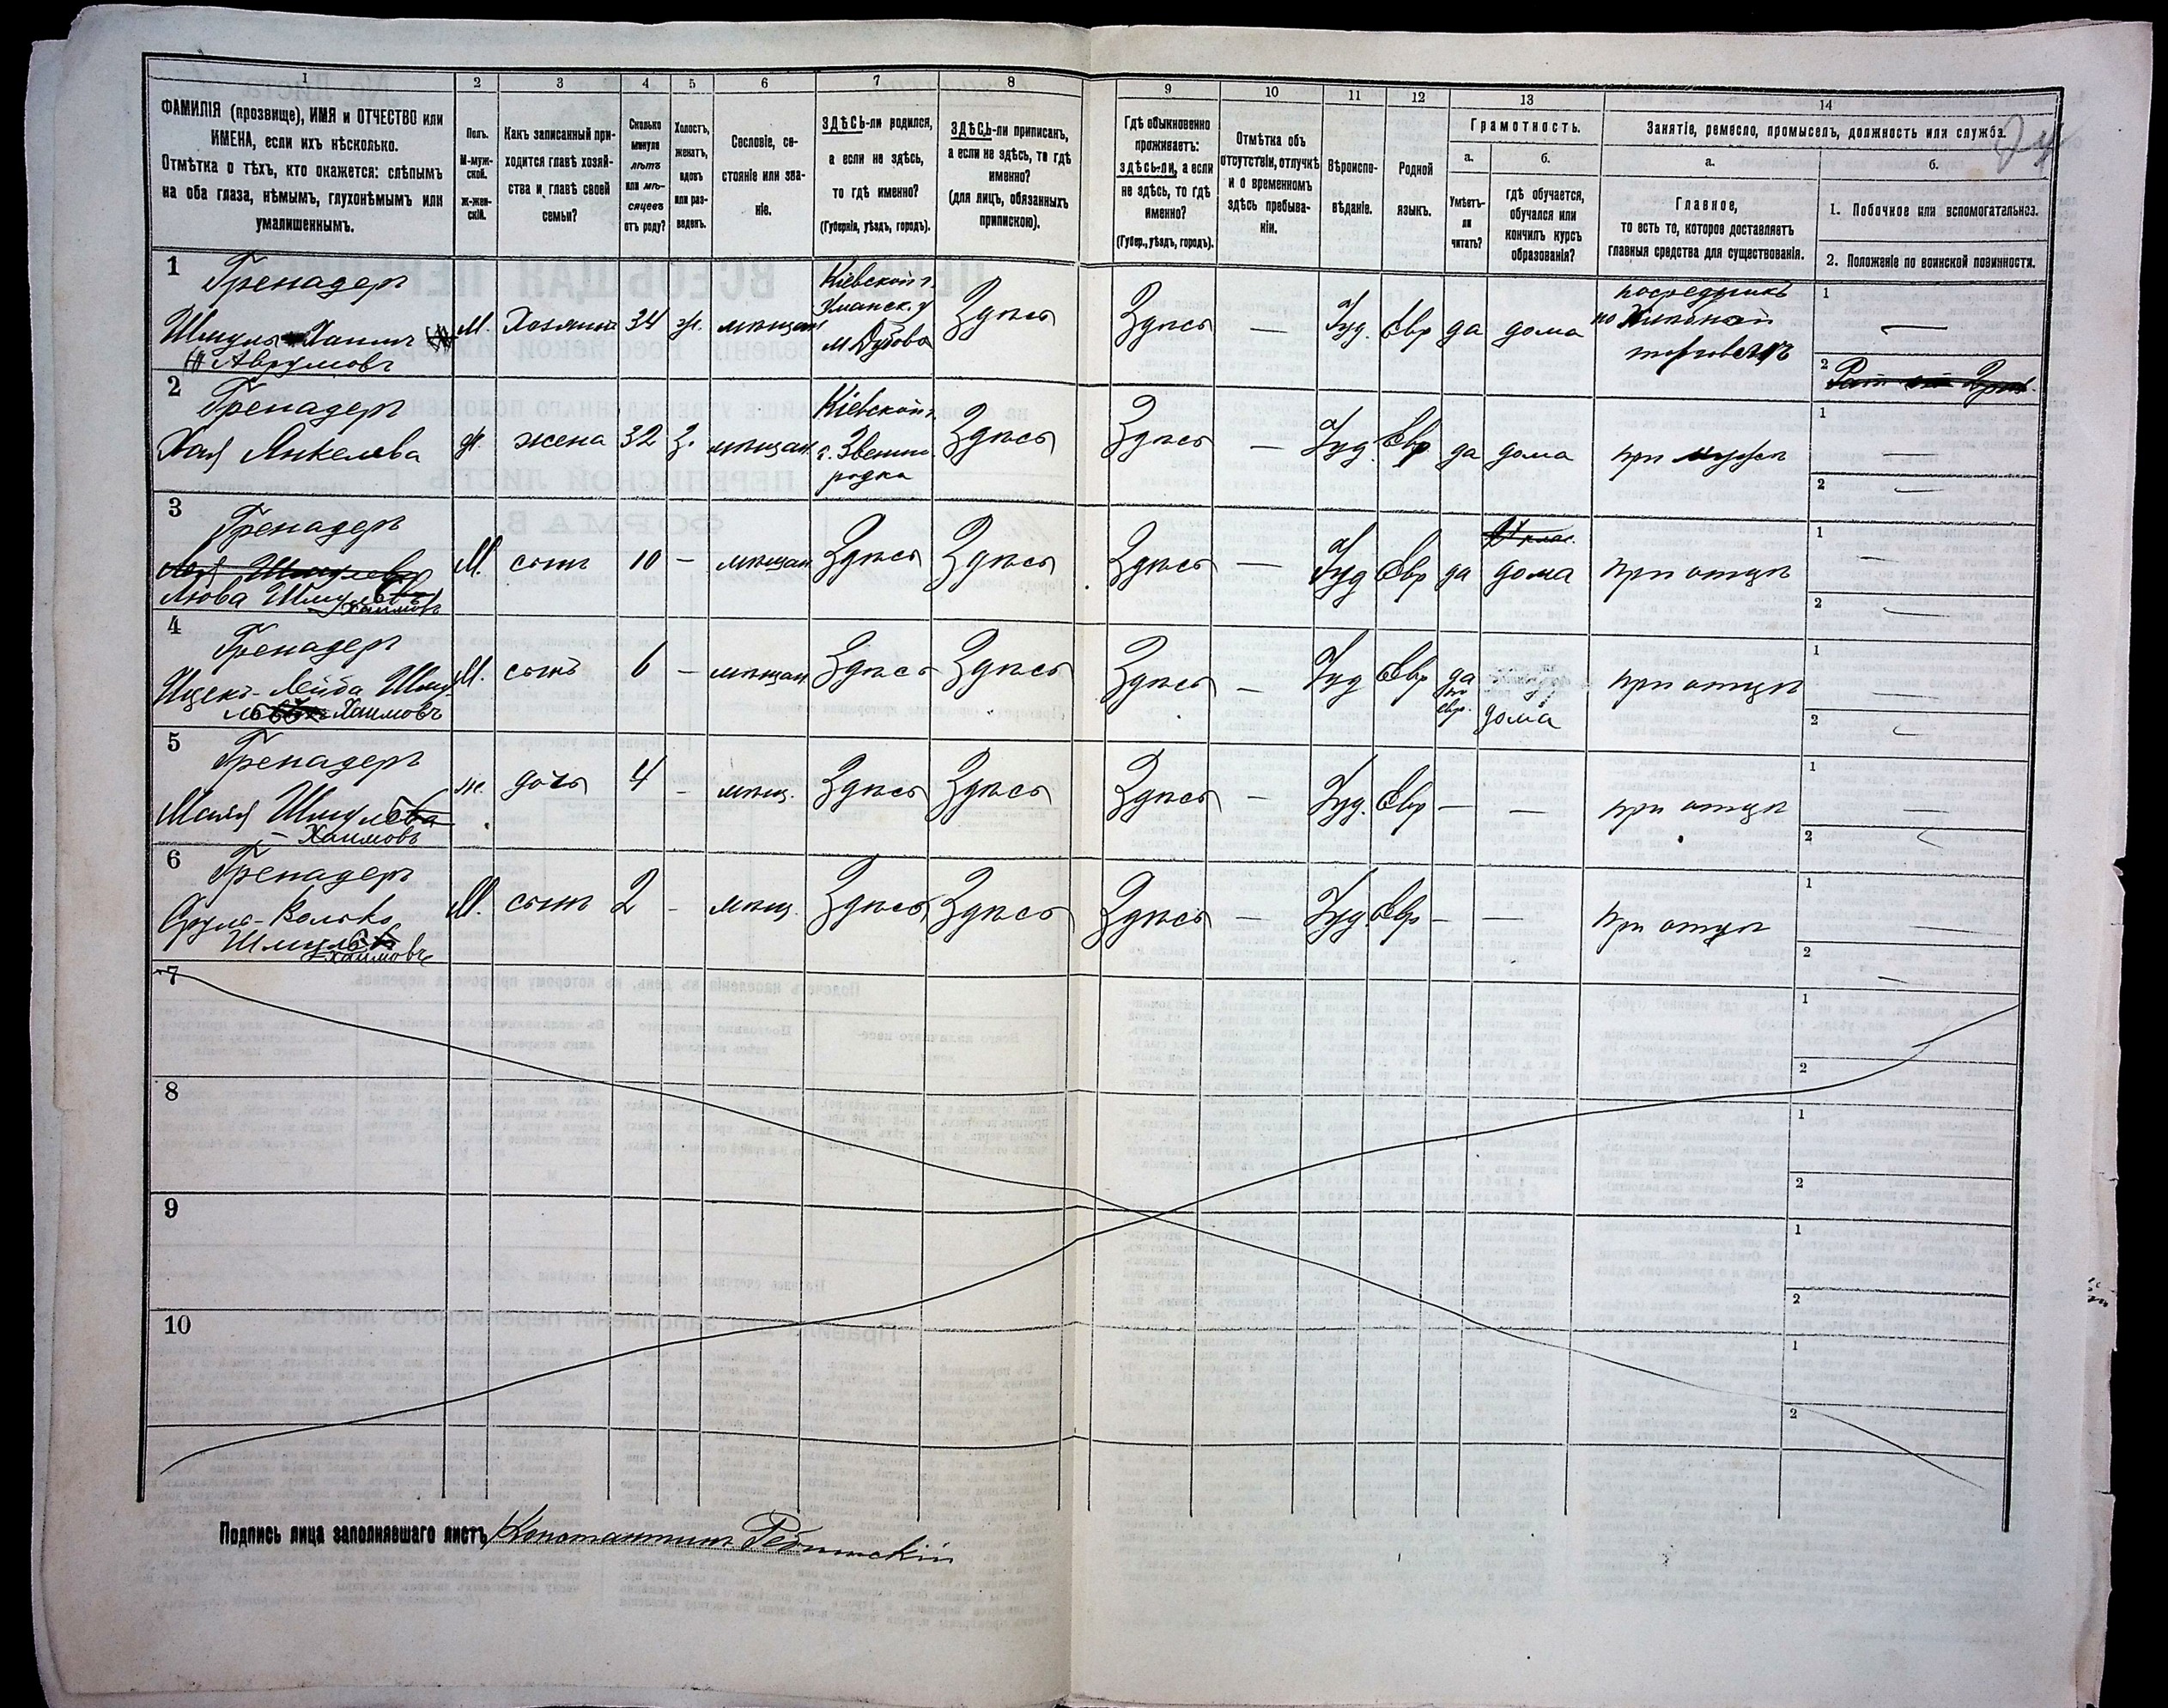 1 2 3 4 5 6 7 8 9 10 11 12 13 14
ФАМИЛІЯ (прозвище), ИМЯ и ОТЧЕСТВО или
ИМЕНА, если ихъ нѣсколько.
Отмѣтка о тѣхъ, кто окажется: слѣпымъ
на оба глаза, нѣмымъ, глухонѣмымъ или
умалишеннымъ.
Полъ.
М-муж-
ской.
Ж-жен-
скій.
Какъ записанный при-
ходится главѣ хозяй-
ства и главѣ своей
семьи?
Сколько
минуло
лѣтъ
или мѣ-
сяцевъ
отъ роду?
Холостъ,
женатъ,
вдовъ
или раз-
веденъ.
Сословіе, со-
стояніе или зва-
ніе.
ЗДѢСЬ-ли родился,
а если не здѣсь,
то гдѣ именно?
(Губернія, уѣздъ, городъ).
ЗДѢСЬ-ли приписанъ,
а если не здѣсь, то гдѣ
именно?
(для лицъ, обязанныхъ
припискою).
Гдѣ обыкновенно
проживаетъ:
здѣсь-ли, а если
не здѣсь, то гдѣ
именно?
(Губер., уѣздъ, городъ).
Отмѣтка объ
отсутствіи, отлучкѣ
и о временномъ
здѣсь пребыва-
ніи.
Вѣроиспо-
вѣданіе.
Родной
языкъ.
Грамотность.
а.
Умѣетъ-
ли
читать?
б.
гдѣ обучается,
обучался или
кончилъ курсъ
образованія?
Занятіе, ремесло, промыселъ, должность или служба.
а.
Главное,
то есть то, которое доставляетъ
главныя средства для существованія.
б.
1. Побочное или вспомогательное.
2. Положеніе по воинской повинности.
1
Гренадеръ
Шмуль Хаимъ
Аврумовъ
М.
Хозяинъ
34
ж.
мѣщан
Кіевской г.
Уманск. у
м. Бубова
Здѣсь
Здѣсь
—
Іуд.
Евр
да
дома
посредникъ
по хлѣбной
торговлѣ
1 —
2
2
Гренадеръ
Хая Янкелева
ж.
жена
32
з.
мѣщан.
Кіевской г.
г. Звени-
родка
Здѣсь
Здѣсь
—
Іуд.
Евр
да
дома
при мужѣ
1 —
2 —
3
Гренадеръ
Лея Шмулева
Люва Шмулевъ
Хаимовъ
М.
сынъ
10
—
мѣщан
Здѣсь
Здѣсь
Здѣсь
—
Іуд
Евр
да
дома
при отцѣ
1 —
2 —
4
Гренадеръ
Ицекъ-Лейба Шму
Хаимовъ
М.
сынъ
6
—
мѣщан
Здѣсь
Здѣсь
Здѣсь
—
Іуд
Евр
да
по
евр.
дома
при отцѣ
1 —
2 —
5
Гренадеръ
Маля Шмулева
Хаимовъ
ж.
дочь
4
—
мѣщ.
Здѣсь
Здѣсь
Здѣсь
—
Іуд.
Евр
—
—
при отцѣ
1 —
2 —
6
Гренадеръ
Сруль-Волько
Шмулевъ
Хаимовъ
М.
сынъ
2
—
мѣщ.
Здѣсь
Здѣсь
Здѣсь
—
Іуд.
Евр
—
—
при отцѣ
1 —
2 —
7
1
2
8
1
2
9
1
2
10
1
2
Подпись лица заполнявшаго листъ Константинъ